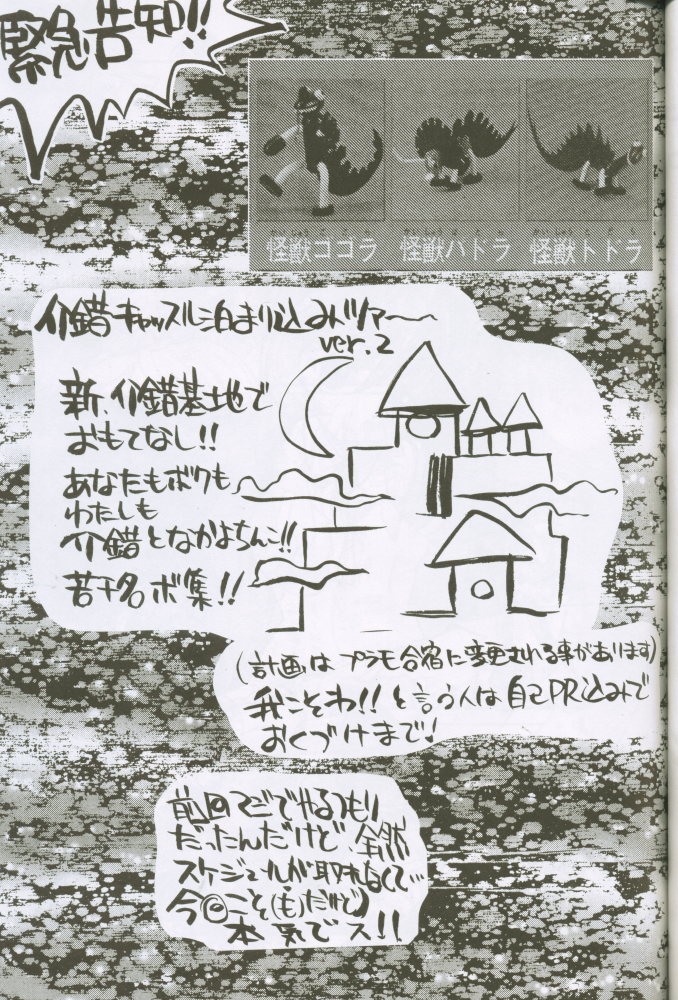 緊急告知!!
かいじゅうごごら
怪獣ゴゴラ
かいじゅうはどら
怪獣ハドラ
かいじゅうとどら
怪獣トドラ
介錯キャッスル泊まり込みツアー
ver.2
新、介錯基地で
おもてなし!!
あなたもボクも
わたしも
介錯となかよちんこ!!
若干名ボ集!!
(計画はプラモ合宿に変更される事があります)
我こそわ!!と言う人は自己PR込みで
おくづけまで!
前回マジでやるつもり
だったんだけど、全然
スケジュールが取れなくて…
今回こそ(も)だけど)
本気でス!!